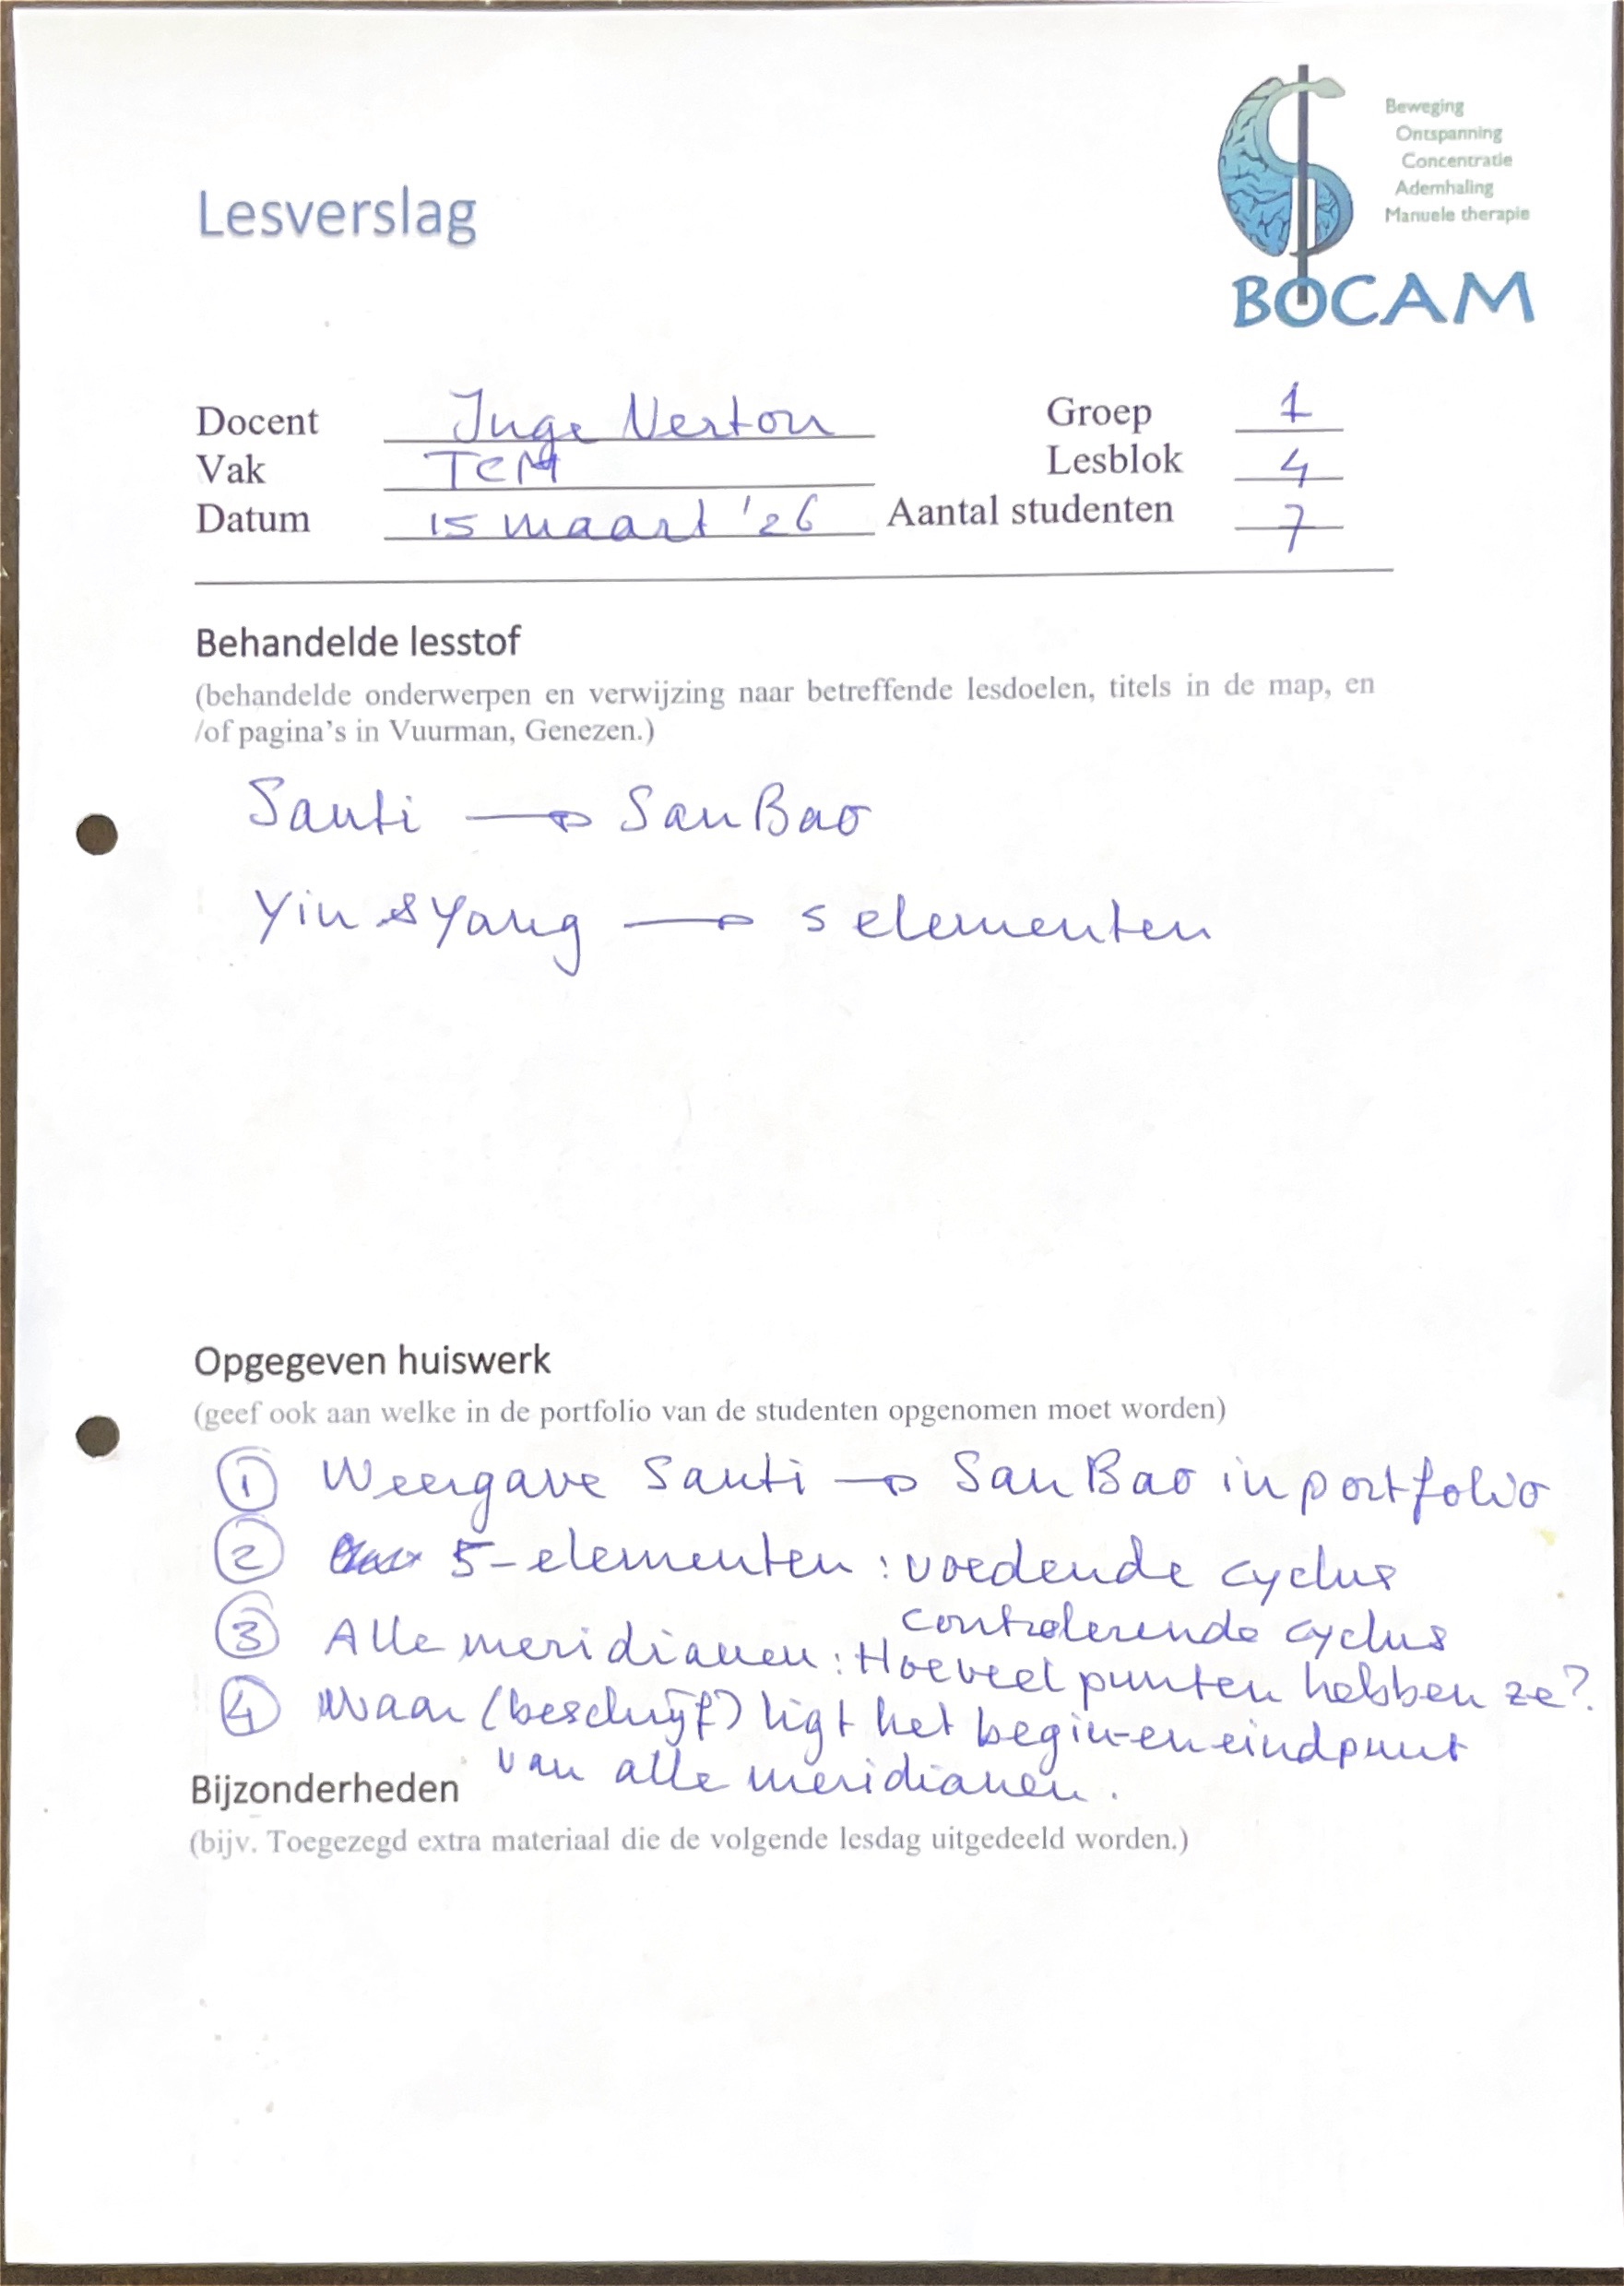 Beweging
Ontspanning
Concentratie
Ademhaling
Manuele therapie
BOCAM
Lesverslag
Docent Inge Nerton Groep 1
Vak TCM Lesblok 4
Datum 15 maart '26 Aantal studenten 7
Behandelde lesstof
(behandelde onderwerpen en verwijzing naar betreffende lesdoelen, titels in de map, en
/of pagina's in Vuurman, Genezen.)
Santi → San Bao
Yin & Yang → 5 elementen
Opgegeven huiswerk
(geef ook aan welke in de portfolio van de studenten opgenomen moet worden)
① Weergave Santi → San Bao in portfolio
② 5-elementen : voedende cyclus
controlerende cyclus
③ Alle meridianen : Hoeveel punten hebben ze?
④ Waar (beschrijf) ligt het begin-en eindpunt
van alle meridianen.
Bijzonderheden
(bijv. Toegezegd extra materiaal die de volgende lesdag uitgedeeld worden.)